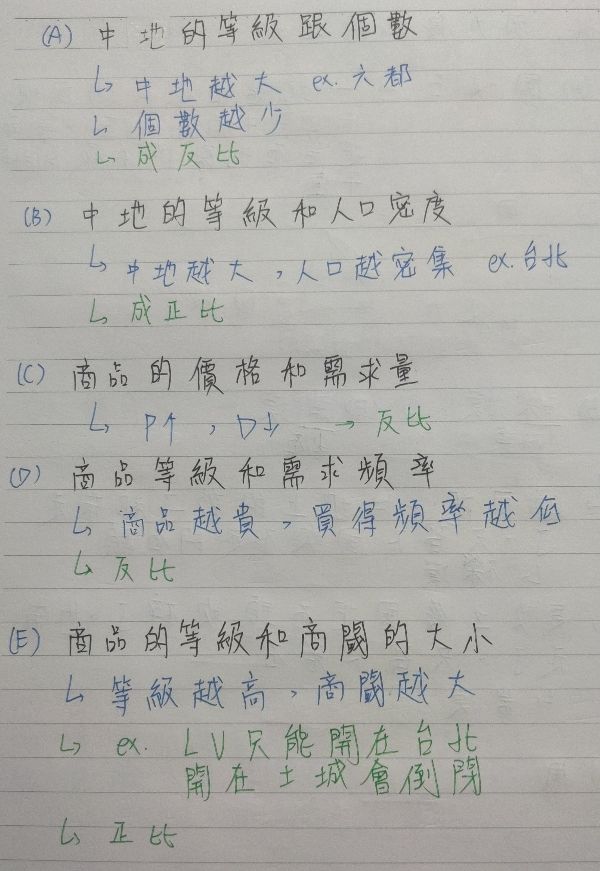 (A) 中地的等級跟個數
↳ 中地越大 ex. 六都
↳ 個數越少
↳ 成反比
(B) 中地的等級和人口密度
↳ 中地越大，人口越密集 ex. 台北
↳ 成正比
(C) 商品的價格和需求量
↳ P↑，D↓ → 反比
(D) 商品等級和需求頻率
↳ 商品越貴，買得頻率越低
↳ 反比
(E) 商品的等級和商閾的大小
↳ 等級越高，商閾越大
↳ ex. LV只能開在台北
開在土城會倒閉
↳ 正比